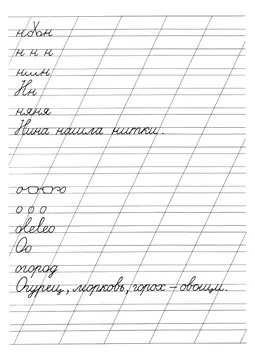 н н н
Нн
няня
Нина нашла нитки.
о о о
Оо
огород
Огурец, морковь, горох – овощи.